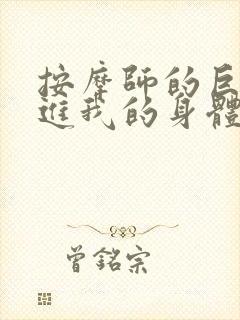 按摩師的巨
進我的身體
曾銘宗